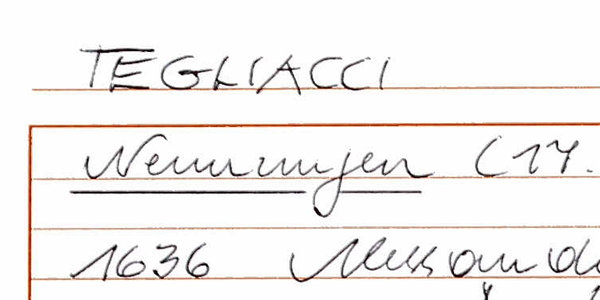 TEGLIACCI
Nennungen (17.
1636